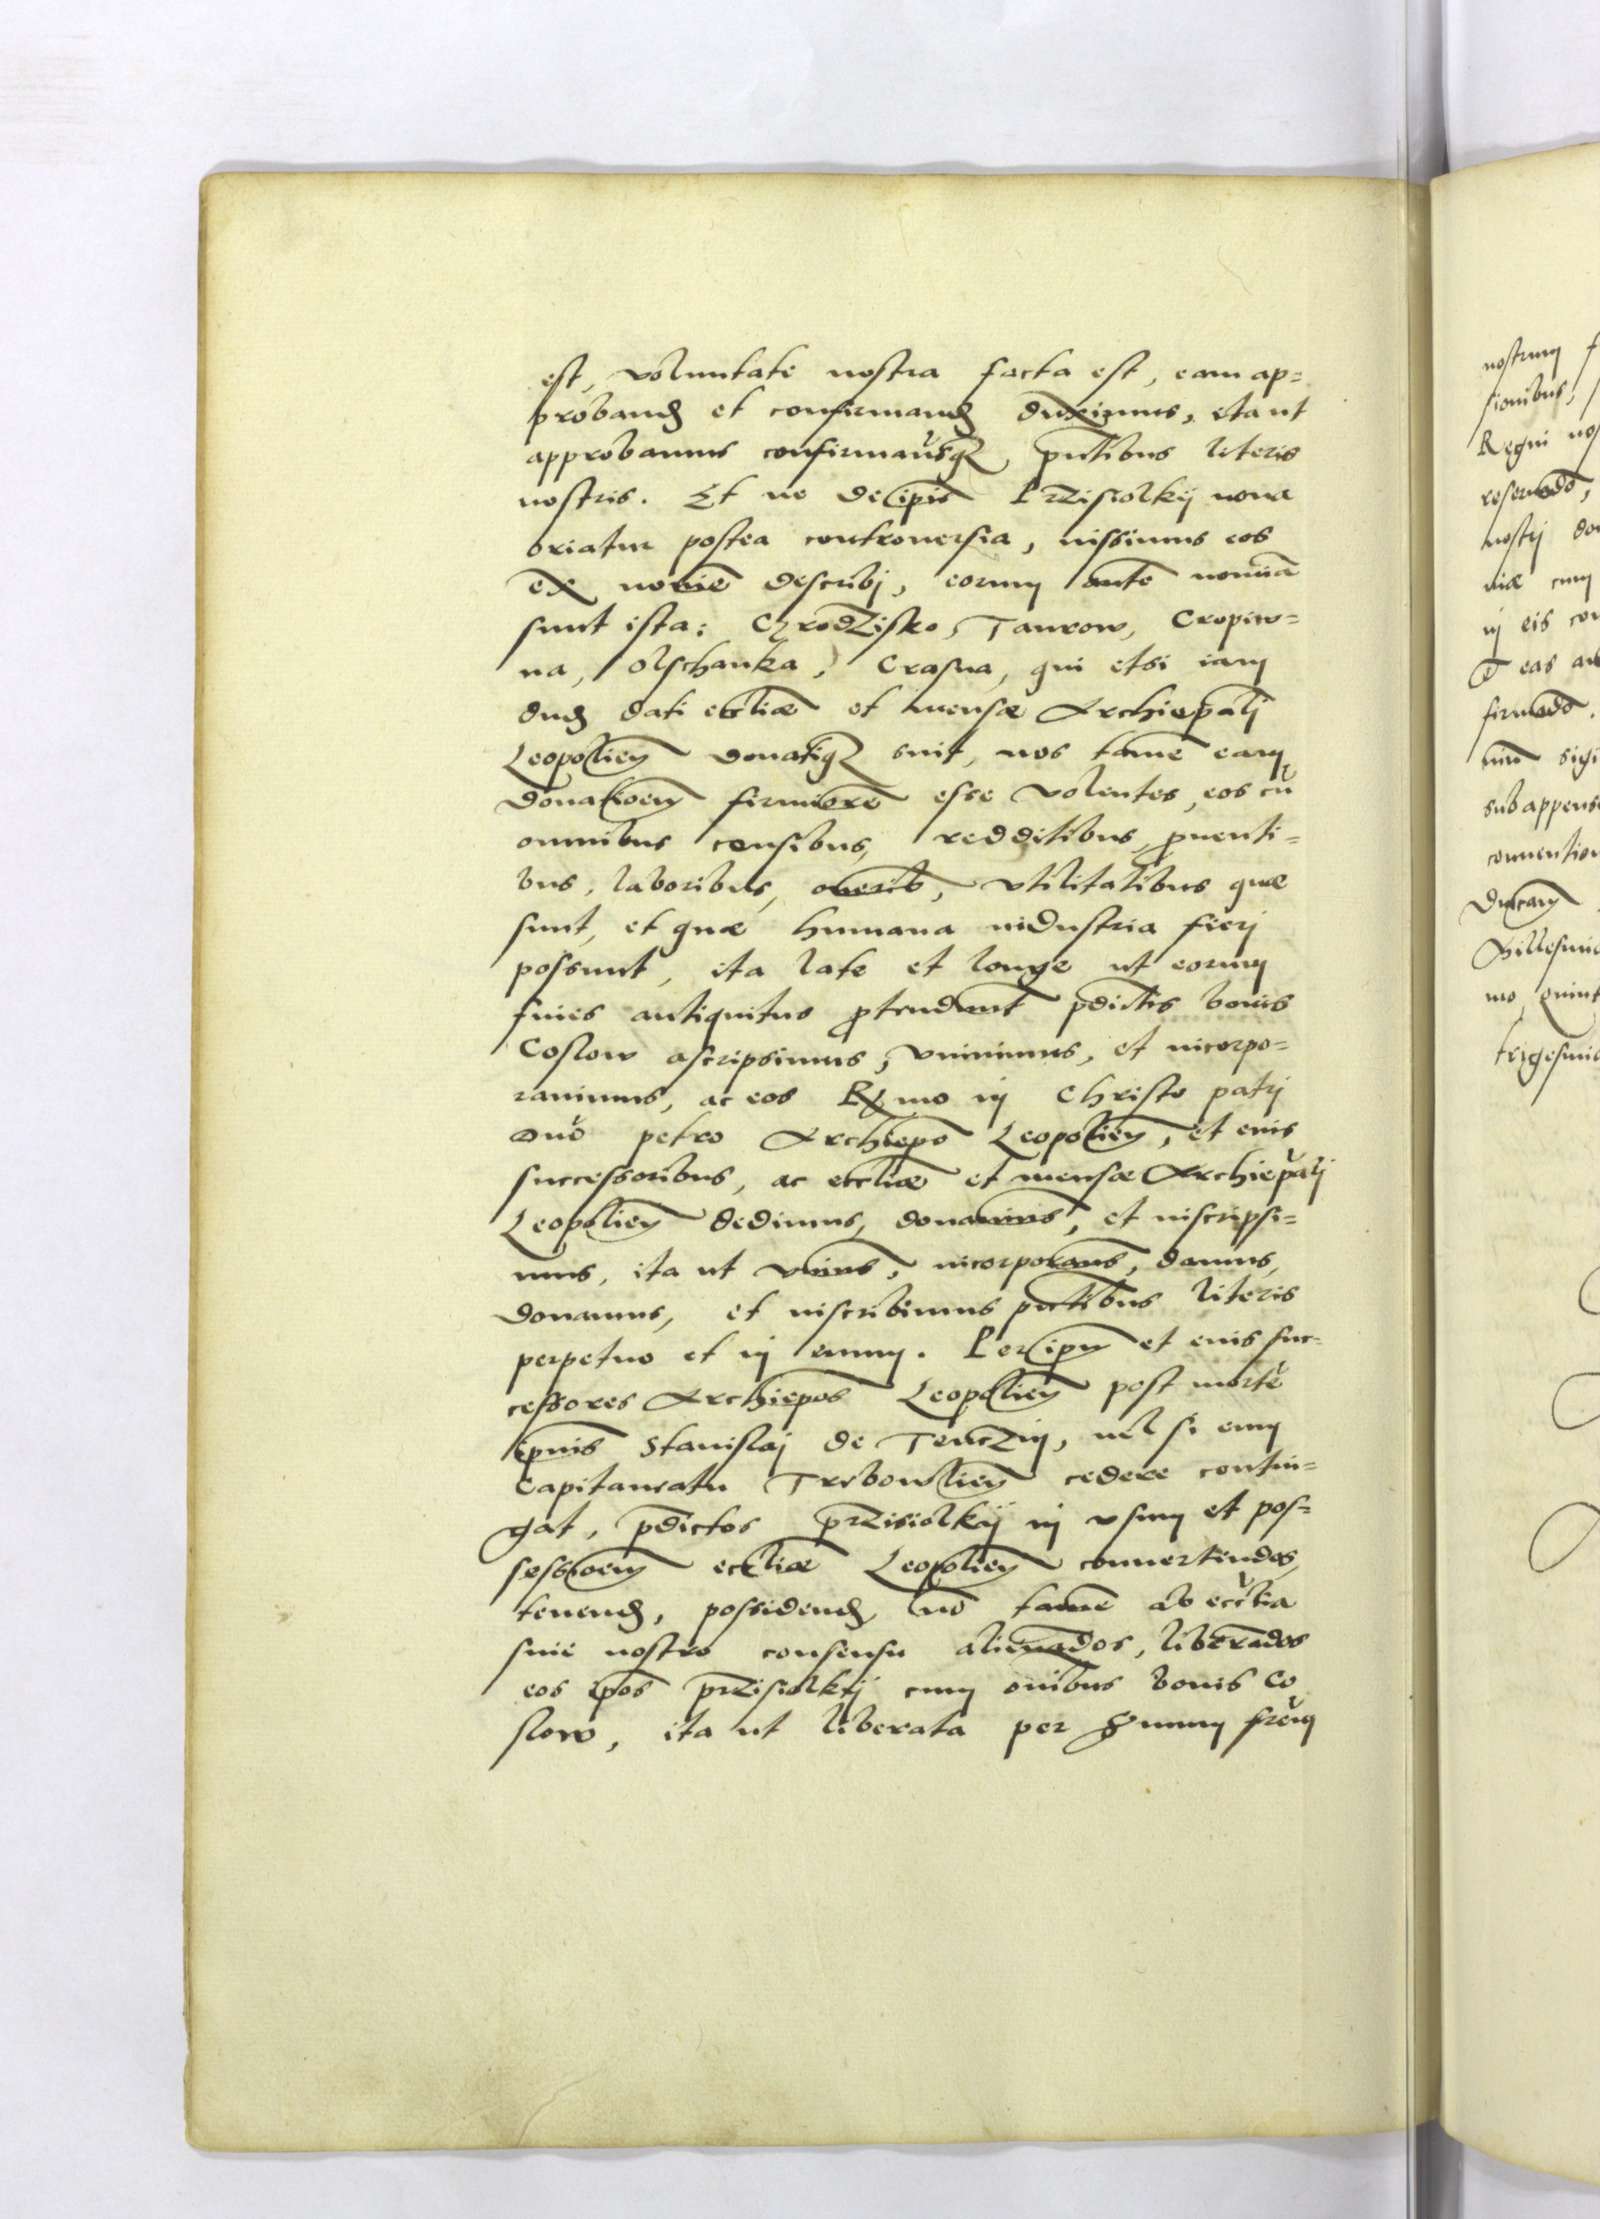 est, voluntate nostra facta est, eam ap=
probandā et confirmandā duximus, ita ut
approbamus confirmamusq₃, pn̄tibus literis
nostris. Et ne de ip̄is Przisiolkij noua
oriatur postea controuersia, iussimus eos
ex noīe describj, eorum autē nomīa
sunt ista: Chrodzisko, Taurow, Cropiw=
na, Olschanka, Crasna, qui etsi iam
dudū dati eccliæ et mensæ Archiep̄alj
Leopolień donatiq₃ sint, nos tamē eam
donac̄oem firmiorē esse volentes, eos cū
omnibus censibus, redditibus, prouenti=
bus, laboribus, oneribꝰ, vtilitatibus quæ
sunt, et quæ humana industria fierj
possunt, ita late et longe ut eorum
fines antiquitus protendunt p̄dictis bonis
Coslow ascripsimus, vniuimus, et incorpo=
rauimus, ac eos Rmo in Christo patrj
Dn̄o petro Archiep̄o Leopolień, et eius
successoribus, ac eccliæ et mensæ Archiep̄alj
Leopolień dedimus, donauimꝰ, et inscripsi=
mus, ita ut vnimꝰ, incorporamꝰ, damus,
donamus, et inscribimus pn̄tibus literis
perpetuo et in æuum. Per ip̄m et eius suc=
cessores Archiep̄os Leopolień post mortē
ip̄ius Stanislaj de Tenczin, uel si eum
Capitaneatu Trebowlień cedere contin=
gat, p̄dictos przisiolkij in vsum et pos=
sessioēm eccliæ Leopolień conuertendos,
tenendos, possidendos, nō tamē ab ecclia
sine nostro consensu alienādos, liberādos
eos ip̄os przisiolkij cum om̄ibus bonis Co
slow, ita ut liberata per Summ frēm